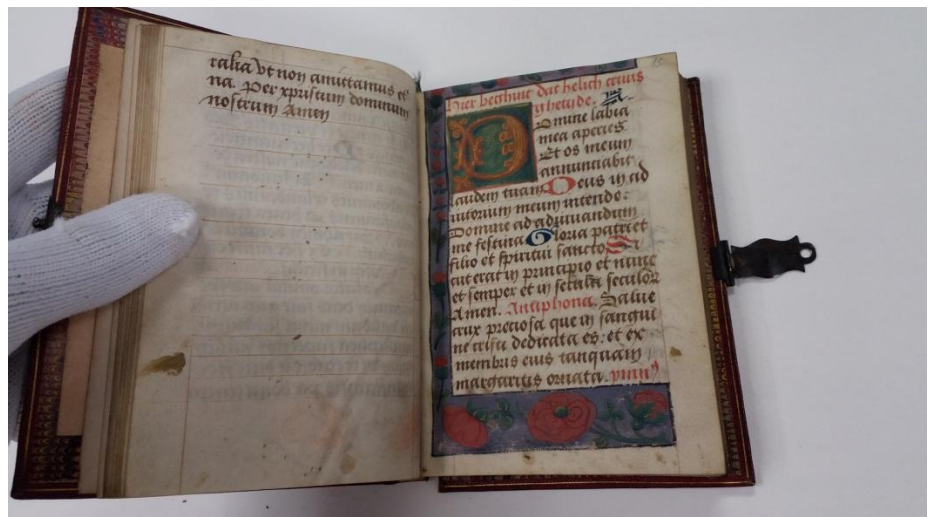 ralia vt non amittamus et
na. Per xpristum dominum
nostrum Amen
Hier beghint dat helich cruus
gheude.
Domine labia
mea aperies
Et os meum
annunciabit
laudem tuam Deus in ad
iutorium meum intende.
Domine ad adiuuandum
me festina Gloria patri et
filio et spiritui sancto Si
cut erat in principio et nunc
et semper et in secula seculor
Amen. Antiphona. Salue
crux preciosa que in sangui
ne cristi dedicata es. et ex
membris eius tanquam
margaritis ornata.